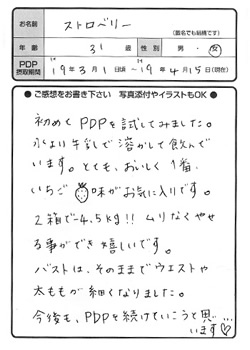 お名前
ストロベリー
(匿名でも結構です)
年齢 31歳 性別 男・女
PDP摂取期間 '19年3月1日頃〜'19年4月15日(現在)
●ご感想をお書き下さい 写真添付やイラストもOK●
初めてPDPを試してみました。
水より牛乳で溶かして飲んで
います。とても、おいしく1番、
いちご味がお気に入りです。
2箱で4.5kg!!ムリなくやせ
る事ができ嬉しいです。
バストは、そのままでウエストや
太ももが細くなりました。
今後も、PDPを続けていこうと思...
います♡